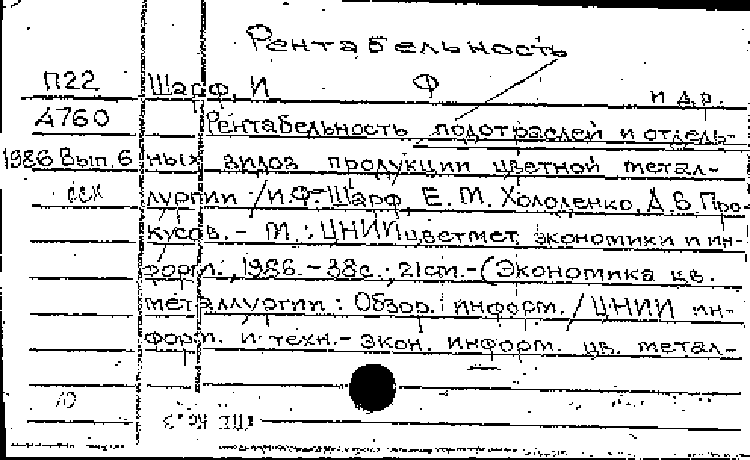 Рентабельность
П22 Шарф, И Ф и др.
А760 Рентабельность подотраслей и отдель-
1986 Вып. 6 ных видов продукции цветной метал-
лургии / И.Ф. Шарф, Е. М. Холоденко, Д. В Про-
кусов. - М. : ЦНИИцветмет экономики и ин-
форм., 1986. - 38с.; 21см. - (Экономика цв.
металлургии : Обзор. информ. / ЦНИИ ин-
форм. и техн.-экон. информ. цв. метал-
10